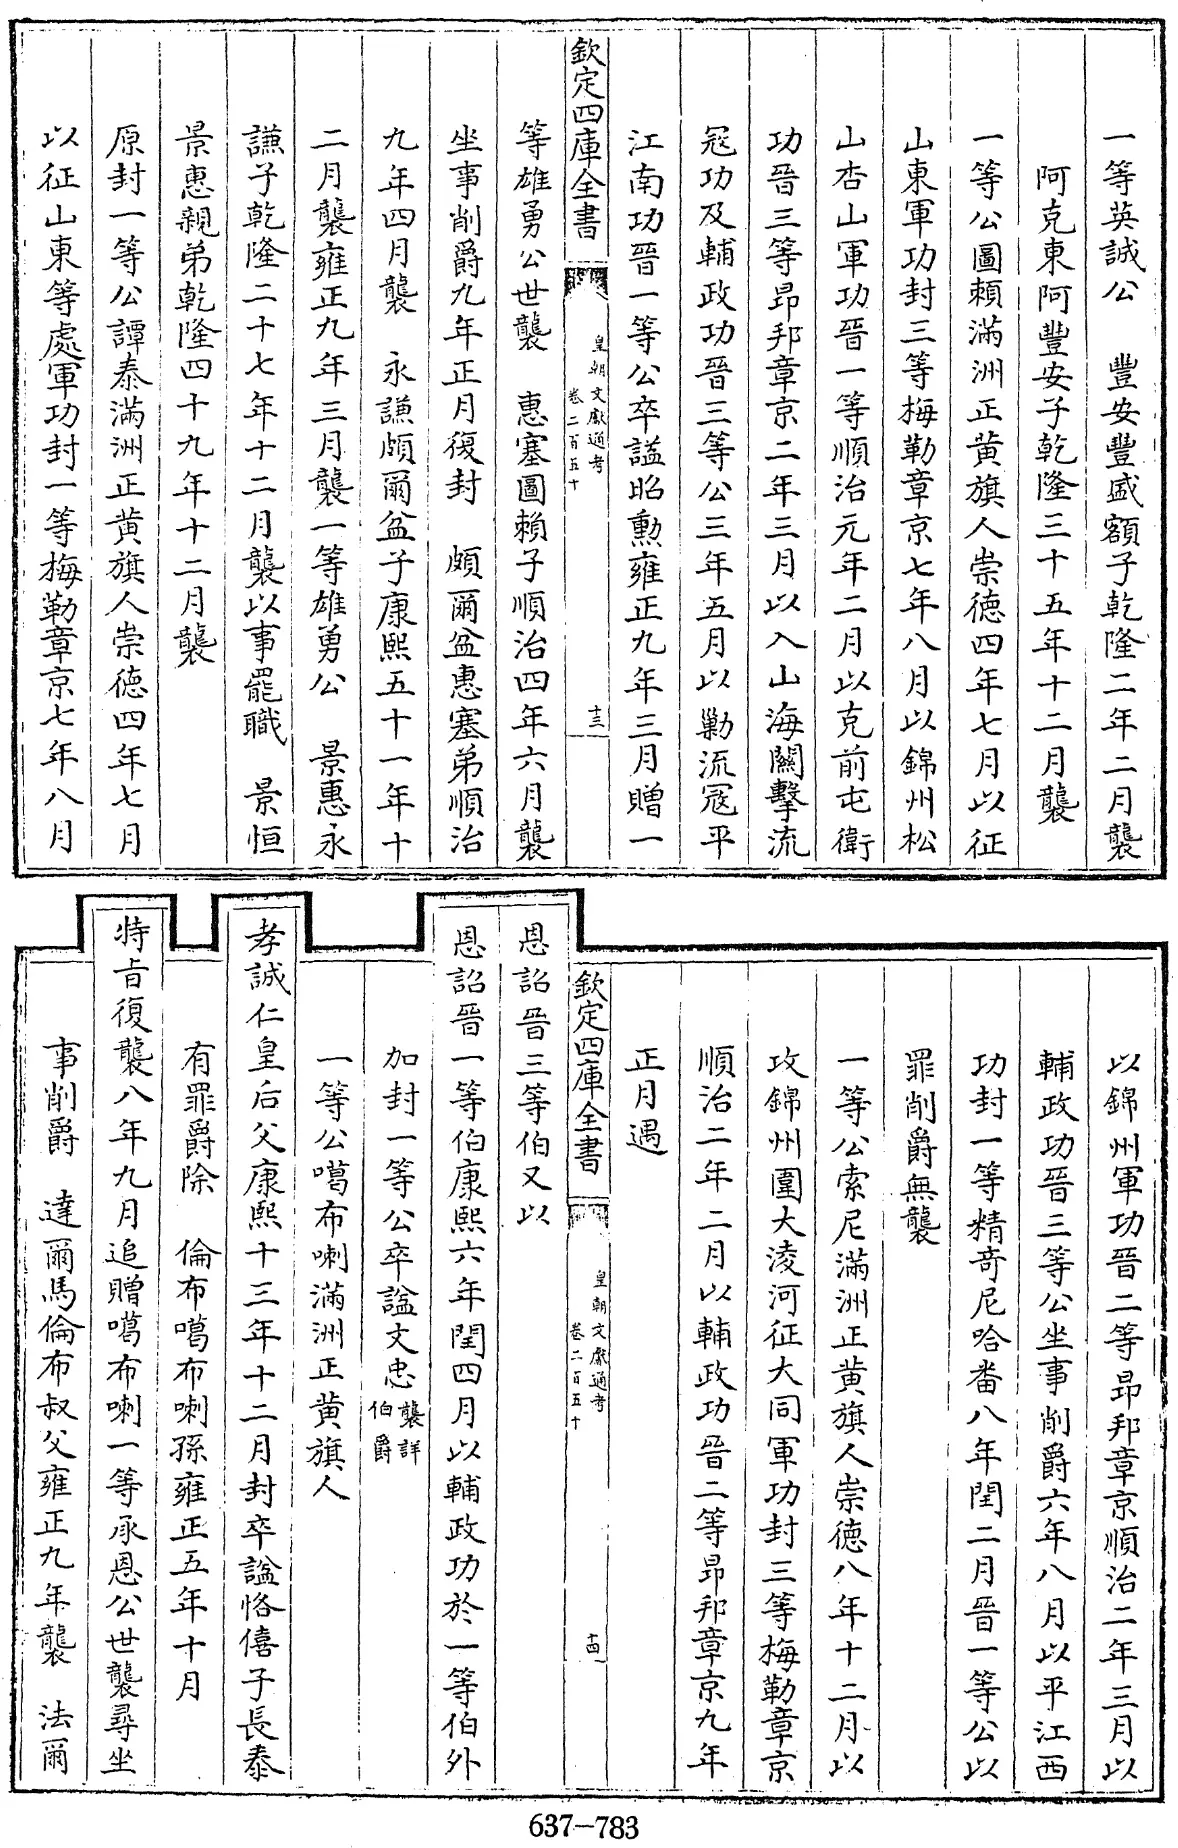 一等英誠公　豐安豐盛額子乾隆二年二月襲
阿克東阿豐安子乾隆三十五年十二月襲
一等公圖賴滿洲正黃旗人崇德四年七月以征
山東軍功封三等梅勒章京七年八月以錦州松
山杏山軍功晉一等順治元年二月以克前屯衛
功晉三等昂邦章京二年三月以入山海關擊流
冦功及輔政功晉三等公三年五月以勦流冦平
江南功晉一等公卒諡昭勲雍正九年三月贈一
欽定四庫全書
皇朝文獻通考
卷二百五十
十三
等雄勇公世襲　惠塞圖賴子順治四年六月襲
坐事削爵九年正月復封　頗爾盆惠塞弟順治
九年四月襲　永謙頗爾盆子康熙五十一年十
二月襲雍正九年三月襲一等雄勇公　景惠永
謙子乾隆二十七年十二月襲以事罷職　景恒
景惠親弟乾隆四十九年十二月襲
原封一等公譚泰滿洲正黃旗人崇德四年七月
以征山東等處軍功封一等梅勒章京七年八月
以錦州軍功晉二等昂邦章京順治二年三月以
輔政功晉三等公坐事削爵六年八月以平江西
功封一等精奇尼哈番八年閏二月晉一等公以
罪削爵無襲
一等公索尼滿洲正黃旗人崇德八年十二月以
攻錦州圍大淩河征大同軍功封三等梅勒章京
順治二年二月以輔政功晉二等昂邦章京九年
正月遇
欽定四庫全書
皇朝文獻通考
卷二百五十
十四
恩詔晉三等伯又以
恩詔晉一等伯康熙六年閏四月以輔政功於一等伯外
加封一等公卒諡文忠襲詳伯爵
一等公噶布喇滿洲正黃旗人
孝誠仁皇后父康熙十三年十二月封卒諡恪僖子長泰
有罪爵除　倫布噶布喇孫雍正五年十月
特旨復襲八年九月追贈噶布喇一等承恩公世襲尋坐
事削爵　達爾馬倫布叔父雍正九年襲　法爾
637—783